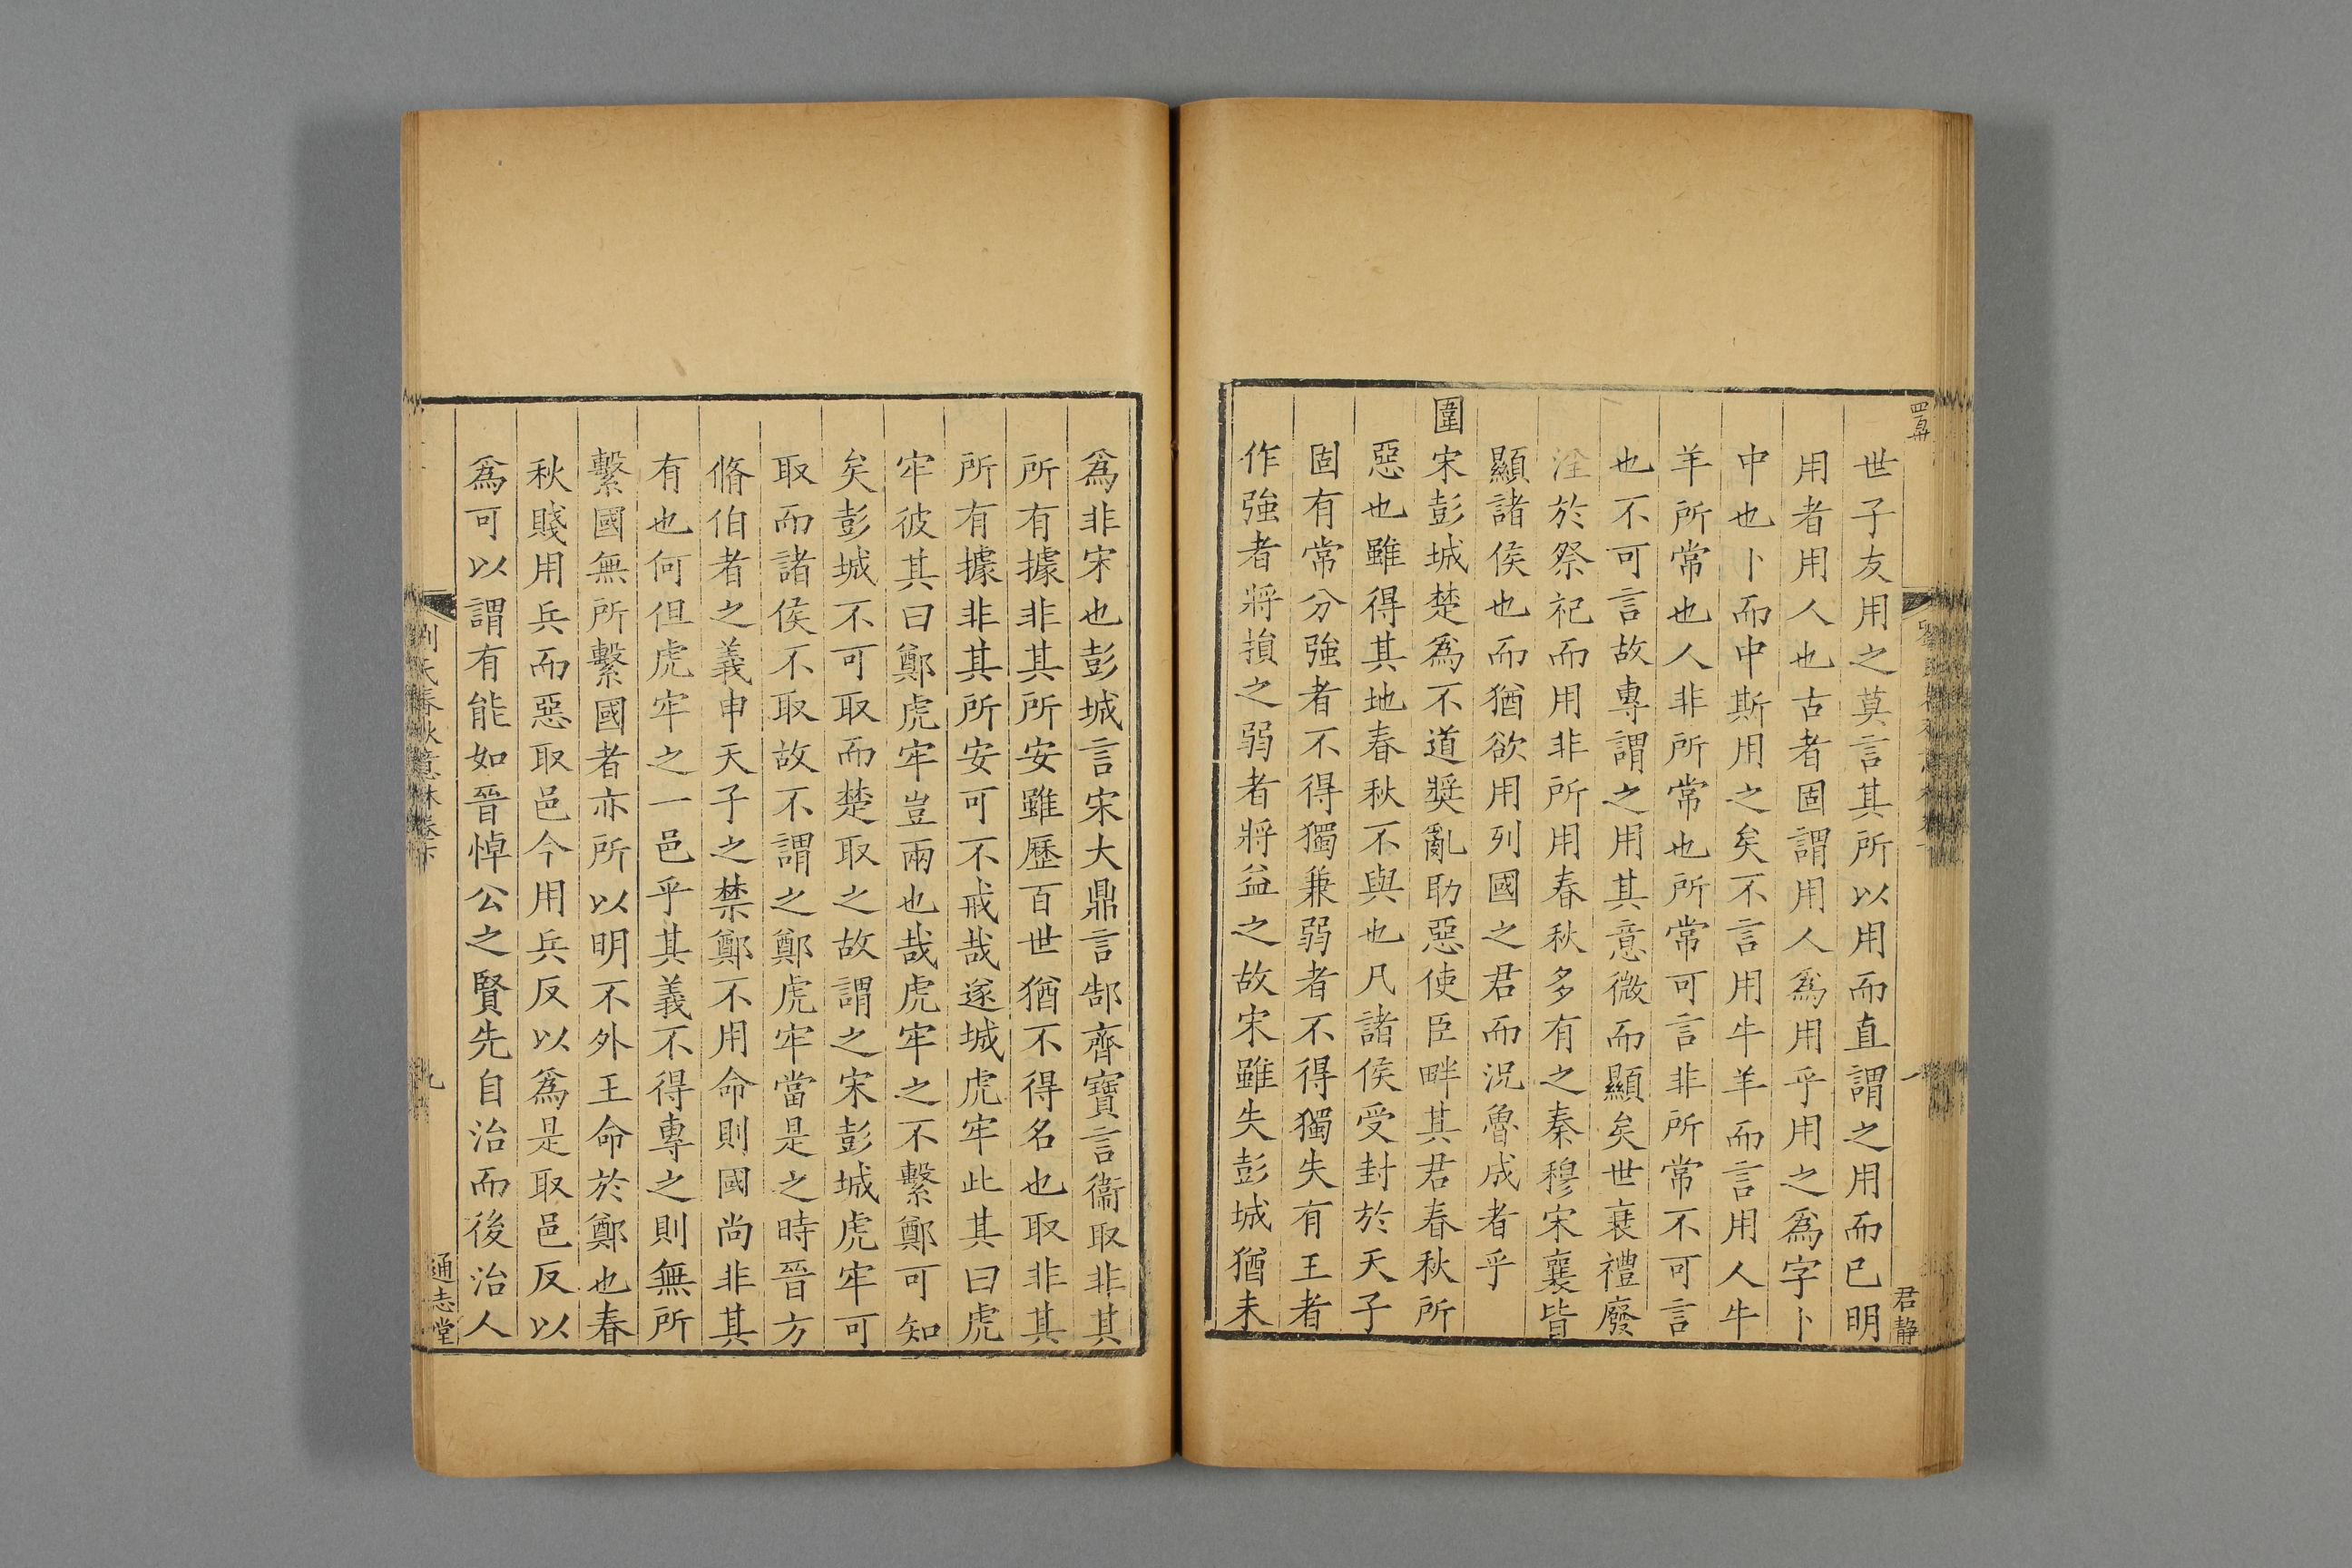 世子友用之莫言其所以用而直謂之用而已明
用者用人也古者固謂用人爲用乎用之爲字卜
中也卜而中斯用之矣不言用牛羊而言用人牛
羊所常也人非所常也所常可言非所常不可言
也不可言故專謂之用其意微而顯矣世衰禮廢
淫於祭祀而用非所用春秋多有之秦穆宋襄皆
顯諸侯也而猶欲用列國之君而況魯成者乎
圍宋彭城楚爲不道奬亂助惡使臣畔其君春秋所
惡也雖得其地春秋不與也凡諸侯受封於天子
固有常分強者不得獨兼弱者不得獨失有王者
作強者將損之弱者將益之故宋雖失彭城猶未
君靜
爲非宋也彭城言宋大鼎言郜齊寶言衞取非其
所有據非其所安雖歷百世猶不得名也取非其
所有據非其所安可不戒哉遂城虎牢此其曰虎
牢彼其曰鄭虎牢豈兩也哉虎牢之不繫鄭可知
矣彭城不可取而楚取之故謂之宋彭城虎牢可
取而諸侯不取故不謂之鄭虎牢當是之時晉方
脩伯者之義申天子之禁鄭不用命則國尚非其
有也何但虎牢之一邑乎其義不得專之則無所
繫國無所繫國者亦所以明不外王命於鄭也春
秋賤用兵而惡取邑今用兵反以爲是取邑反以
爲可以謂有能如晉悼公之賢先自治而後治人
劉氏春秋意林卷下
九
通志堂